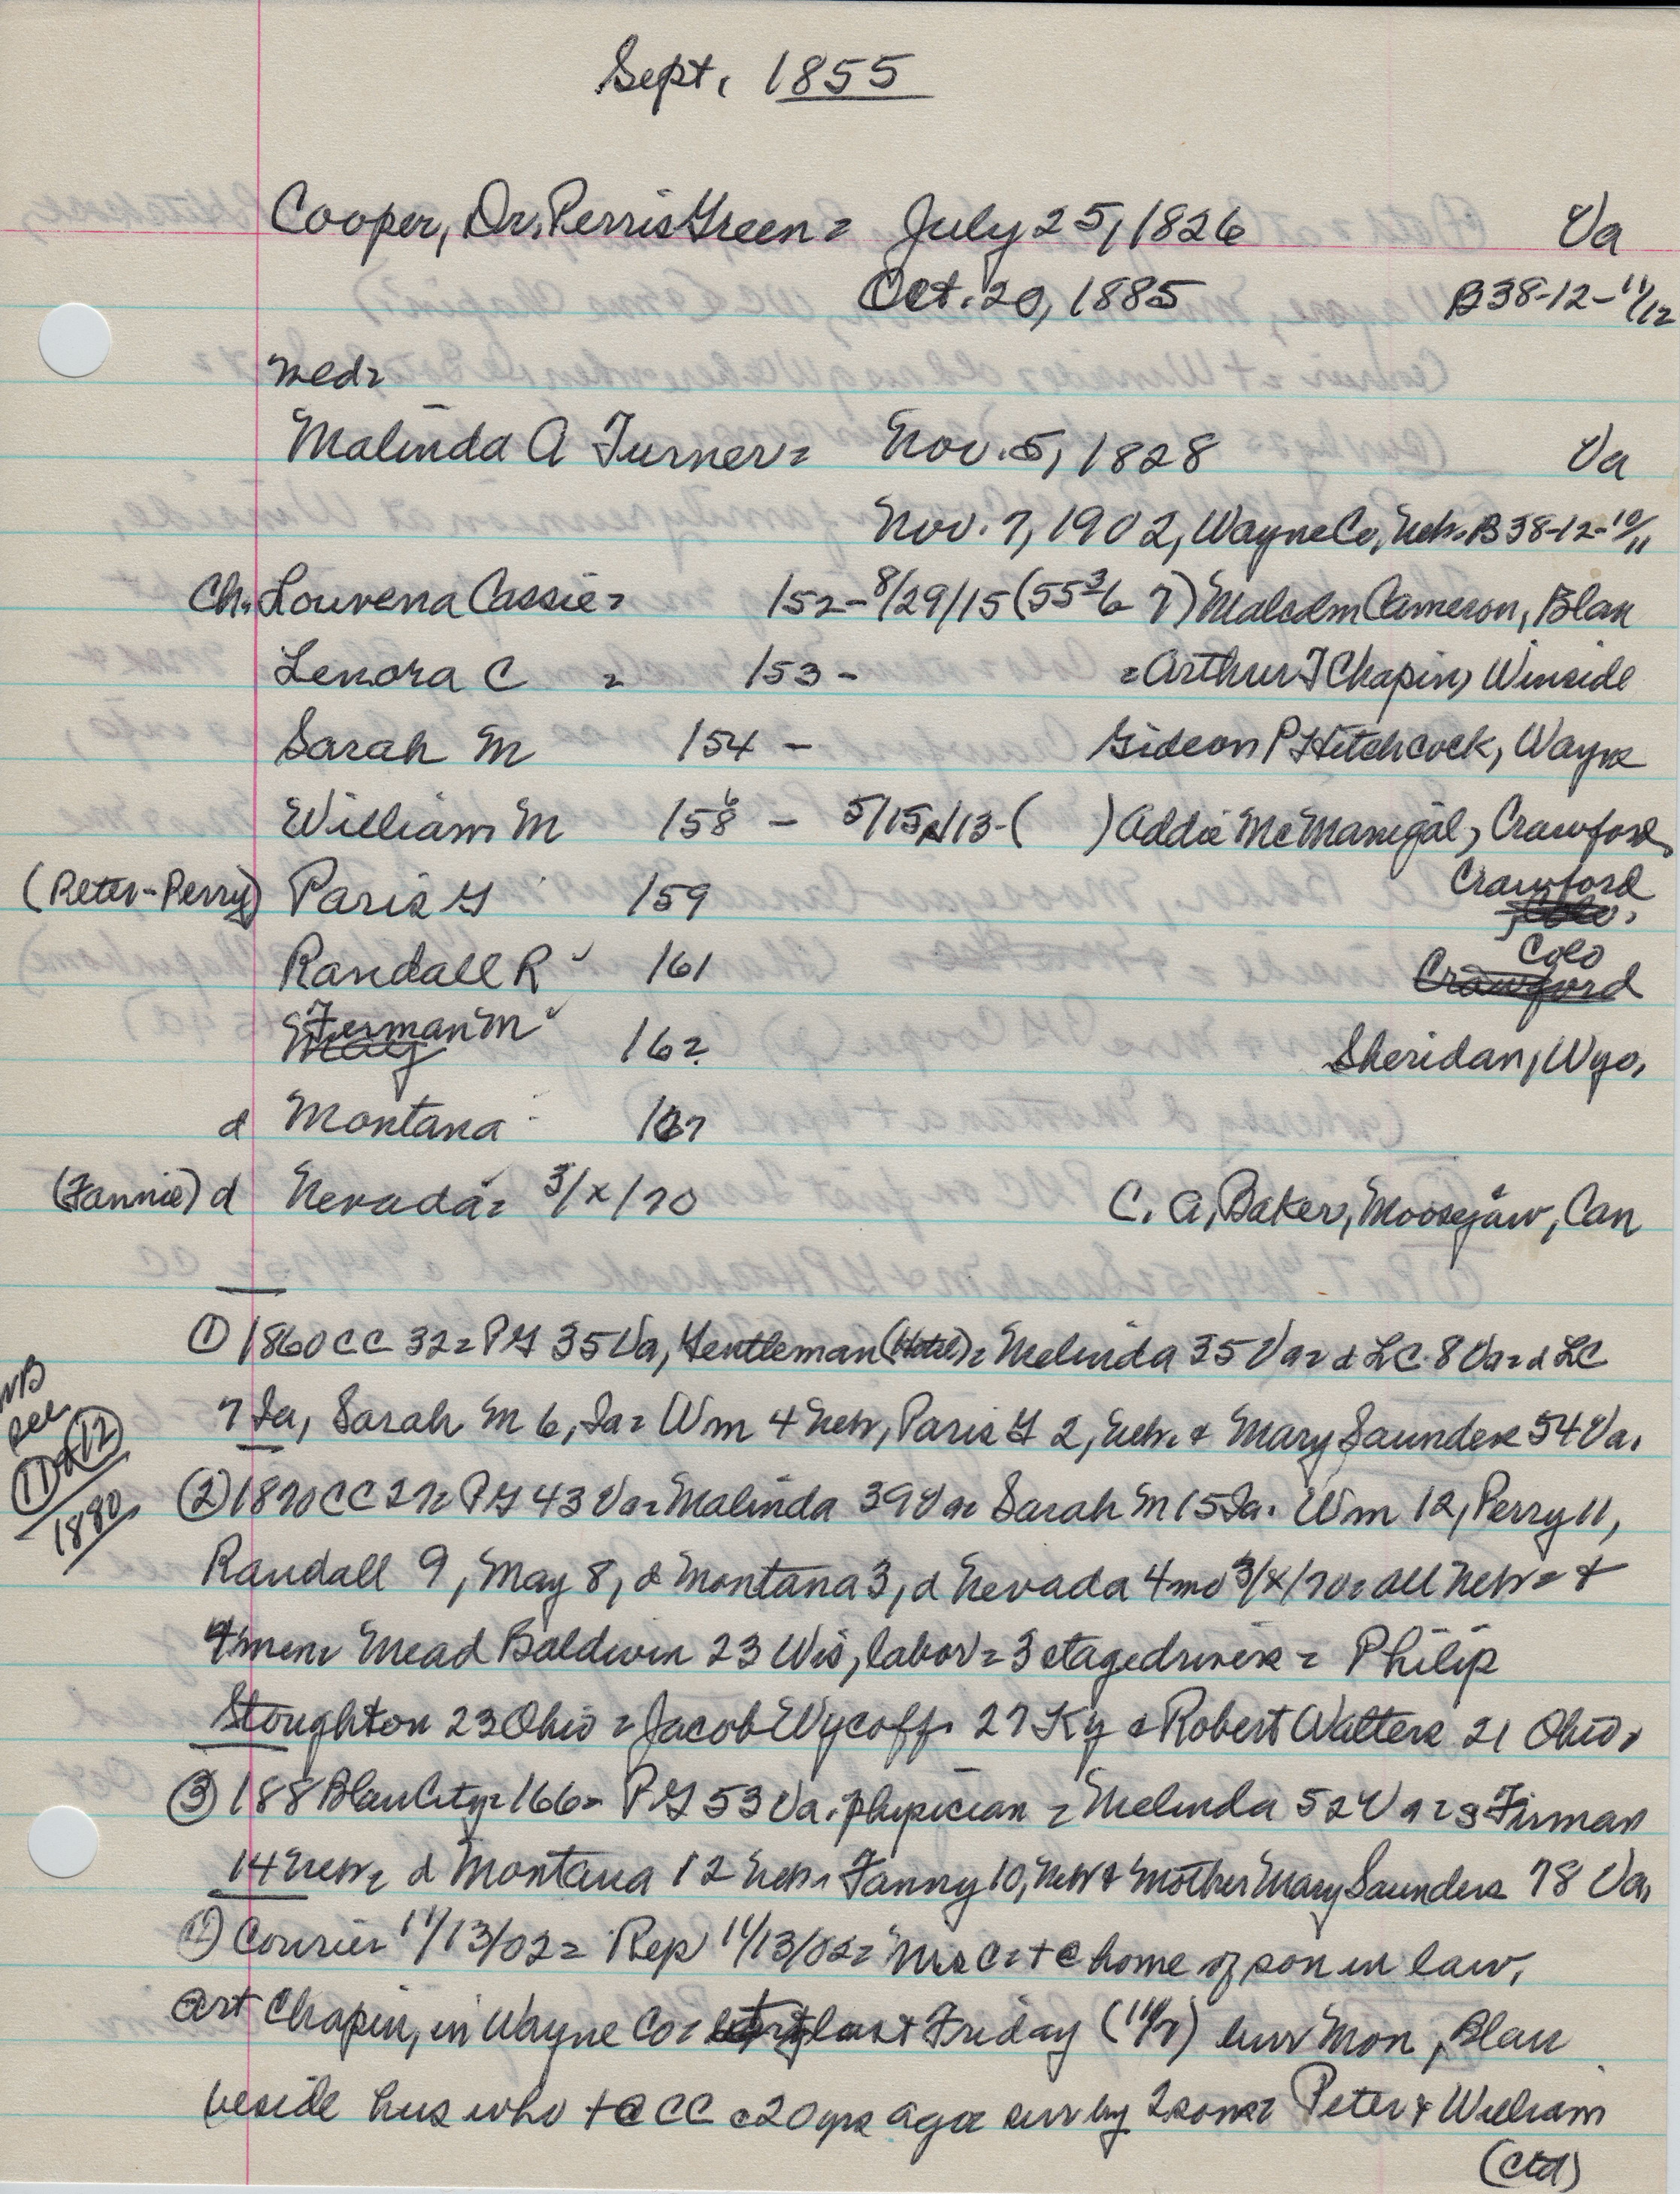 Sept. 1855
Cooper, Dr. Perris Green = July 25, 1826 Va
Oct. 20, 1885 B38-12-11/12
med=
Malinda A Turner = Nov. 5, 1828 Va
Nov. 7, 1902, Wayne Co, Neb. B38-12-10/11
Ch. Louvena Cassie = 152 - 8/29/15 (55 3/6 7) Malcolm Cameron, Blair
Lenora C = 153 - = Arthur T Chapin, Winside
Sarah M 154 - Gideon P Hitchcock, Wayne
William M 158 6 - 5/15/13 - ( ) Addie McManigal, Crawford
(Peter-Perry) Paris G 159 Crawford
Colo.
Randall R 161 Colo
Crawford
Firman M
May 162 Sheridan, Wyo.
d Montana 167
(Fannie) d Nevada = 3/x/70 C. A, Baker, Moosejaw, Can
① 1860 CC 32 = PG 35 Va, Gentleman (Hotel) = Melinda 35 Va = d LC 8 Va = d LC
7 Ia, Sarah M 6, Ia = Wm 4 Neb, Paris G 2, Neb. & Mary Saunders 54 Va.
NB
see
⑪ & ⑫
1880
② 1870 CC 27 = PG 43 Va = Malinda 39 Va = Sarah M 15 Ia. Wm 12, Perry 11,
Randall 9, May 8, d Montana 3, d Nevada 4mo 3/x/70 = all Neb = +
4 men = Mead Baldwin 23 Wis, labor = 3 stagedrivers = Philip
Stoughton 23 Ohio = Jacob Wycoff 27 Ky & Robert Walters 21 Ohio.
③ 188 Blair City = 166 = PG 53 Va. physician = Melinda 52 Va = s Firman
14 Neb = d Montana 12 Neb. Fanny 10, Neb & Mother Mary Saunders 78 Va.
Courier 11/13/02 = Rep 11/13/02 = Mrs C = + @ home of son in law,
Art Chapin, in Wayne Co = last Friday (11/7) bur Mon, Blair
beside hus who + @ CC c 20 yrs ago = surv by 2 sons = Peter & William
(ctd)